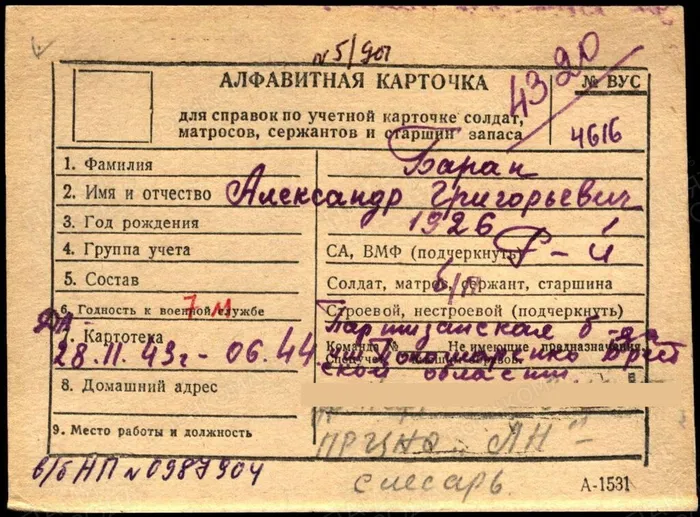 №5/901
АЛФАВИТНАЯ КАРТОЧКА
для справок по учетной карточке солдат,
матросов, сержантов и старшин запаса
4320
№ ВУС
4616
1. Фамилия Баран
2. Имя и отчество Александр Григорьевич
3. Год рождения 1926
4. Группа учета СА, ВМФ (подчеркнуть) Р-й
5. Состав Солдат, матрос, сержант, старшина
6. Годность к военной службе 7 м Строевой, нестроевой (подчеркнуть)
Партизанская б-да
7. Картотека Команда № Не имеющие предназначения
28.11.43г - 06.44 Брест
ской области
8. Домашний адрес
9. Место работы и должность
"АН" -
слесарь
в/б НП №0987904
А-1531